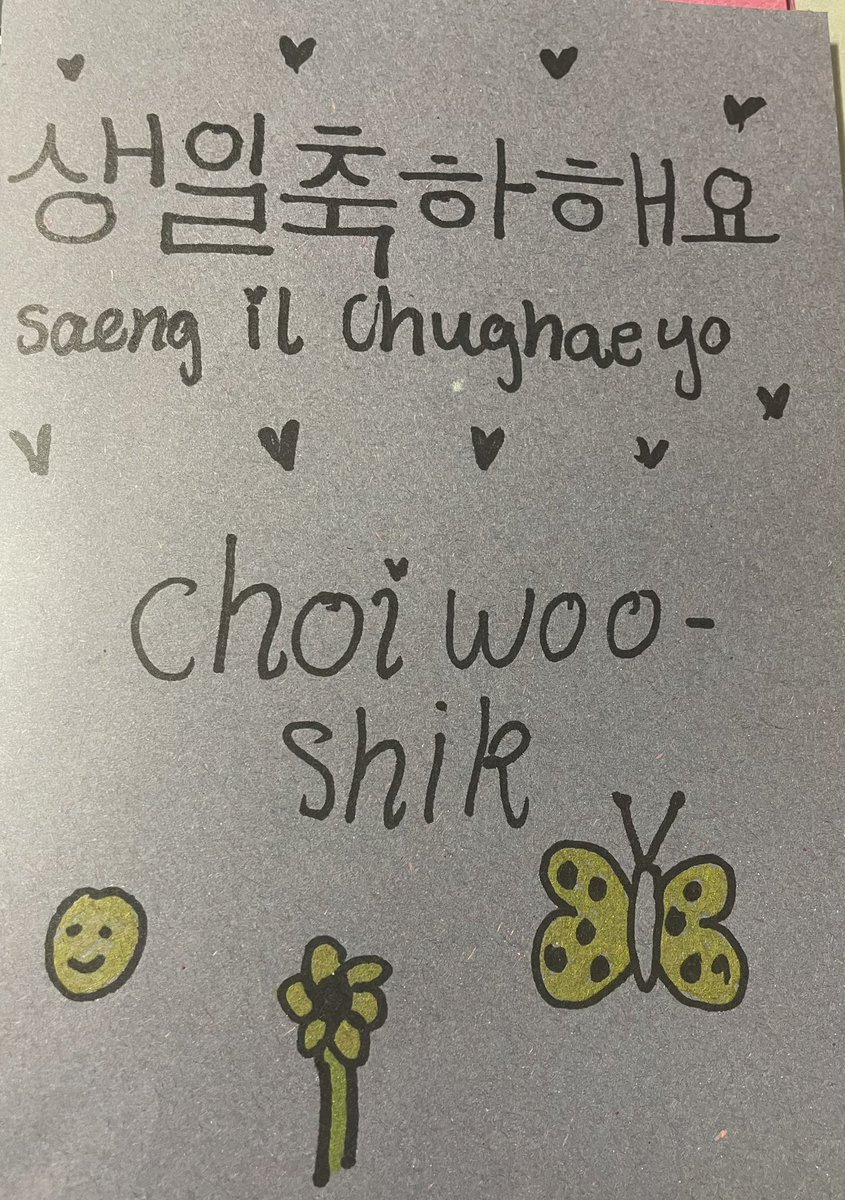 생일축하해요
saeng il chughaeyo
choi woo-
shik